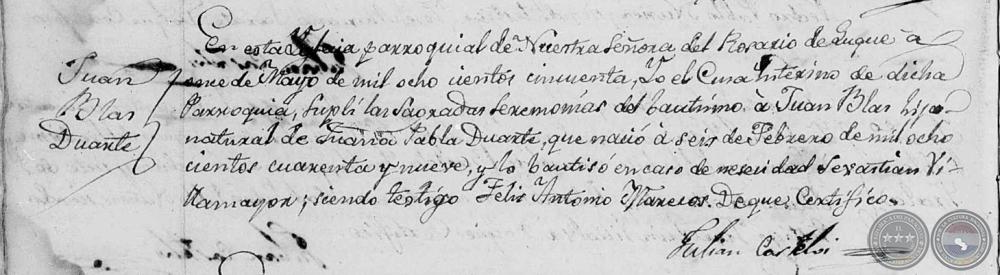 En esta Yglecia parroquial de Nuestra Señora del Rosario de Luque à
Juan
Blas
Duarte
onse de Mayo de mil ocho cientos cincuenta, Yo el Cura Interino de dicha
Parroquia, suplí las sagradas seremonias del bautismo à Juan Blas hijo
natural de Juana Pabla Duarte, que nació à seis de Febrero de mil ocho
cientos cuarenta y nueve, y lo bautisó en caso de nesecidad Sevastian Vi-
llamayor; siendo testigo Felis Antonio Marecos. De que Certifico.
Julian